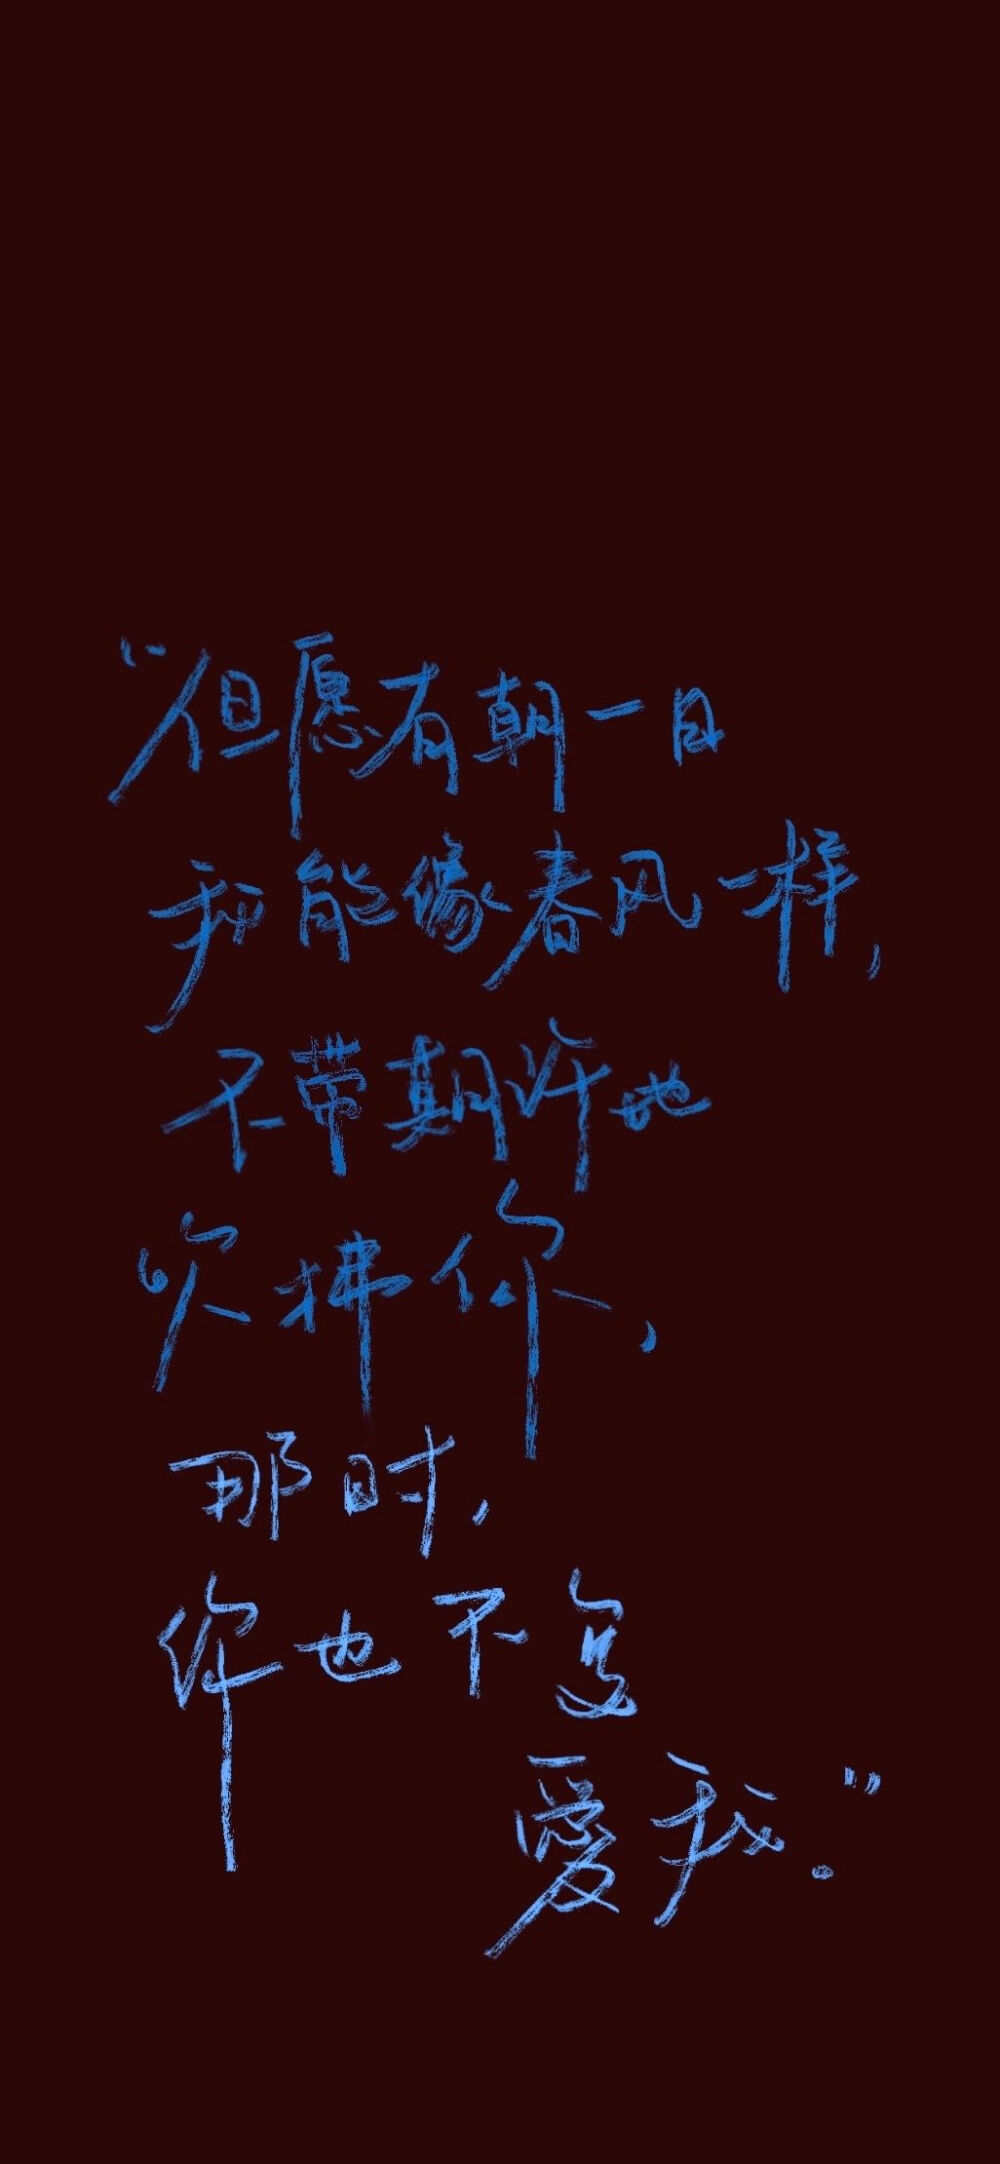 “但愿有朝一日
我能像春风一样，
不带期许地
吹拂你，
那时，
你也不复
爱我。”